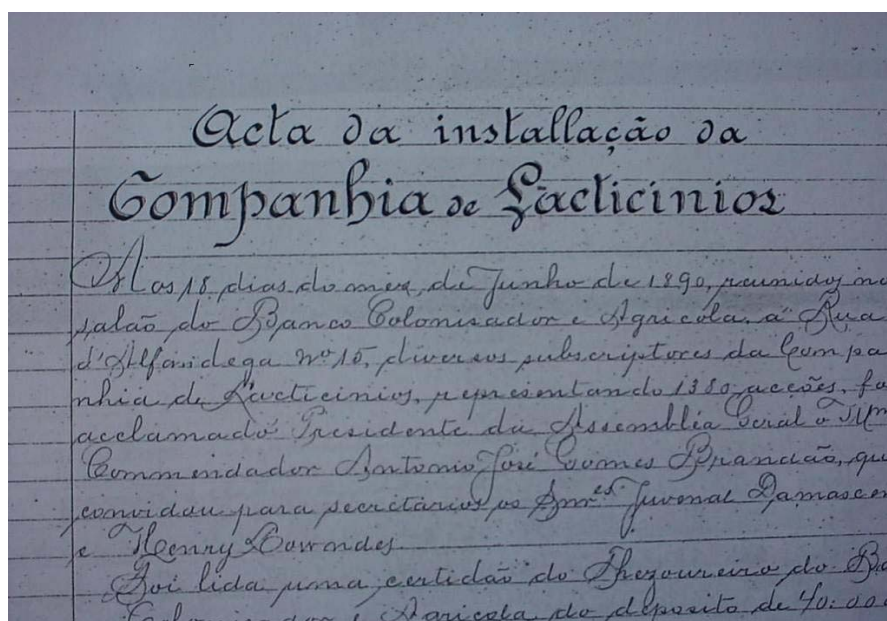 Acta da installação da
Companhia de Lacticinios
Aos 18 dias do mez, de Junho de 1890, reunidos no
salão do Banco Colonisador e Agricola, á Rua
d'Alfandega nº 15, diversos subscriptores da Compa
nhia de Lacticinios, representando 1380 acções, fo
acclamado Presidente da Assemblia Geral o
Commendador Antonio José Gomes Brandão, qu
convidou para secretarios os Snres Juvenal Damascen
e Henry Lowndes
Foi lida uma certidão do Thezoureiro do Ba
e Agricola do deposito de 40:000